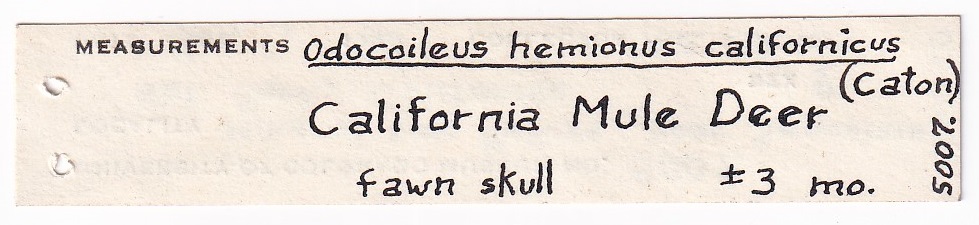 MEASUREMENTS Odocoileus hemionus californicus
(Caton)
California Mule Deer
fawn skull ±3 mo.
2005